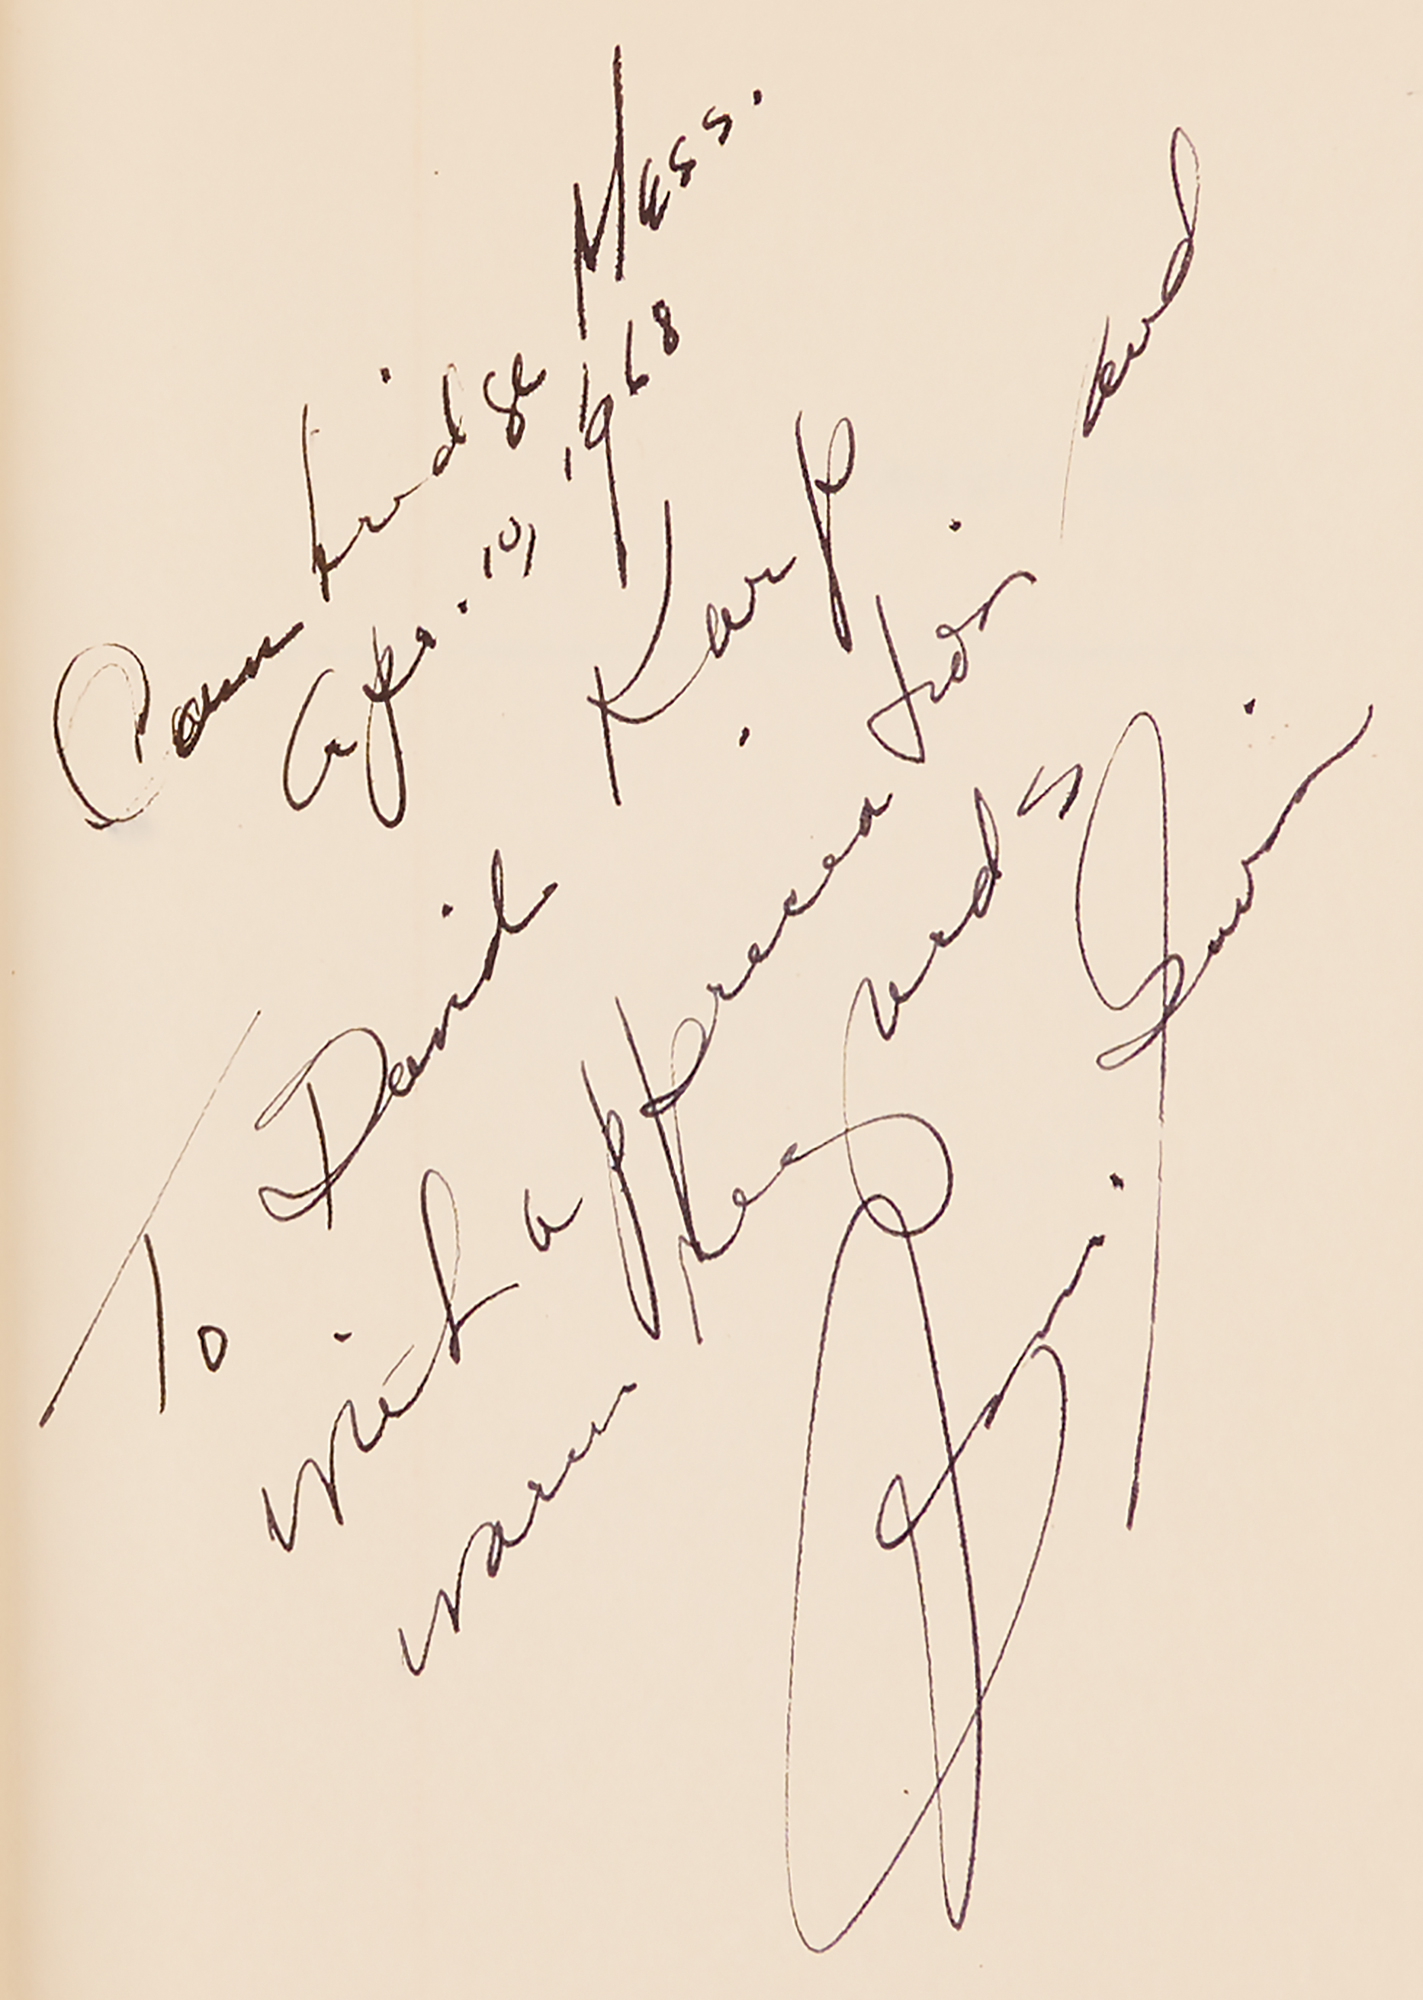 Cambridge Mass.
Apr. 101 1968
To David Karp
with appreciation and
warm regards